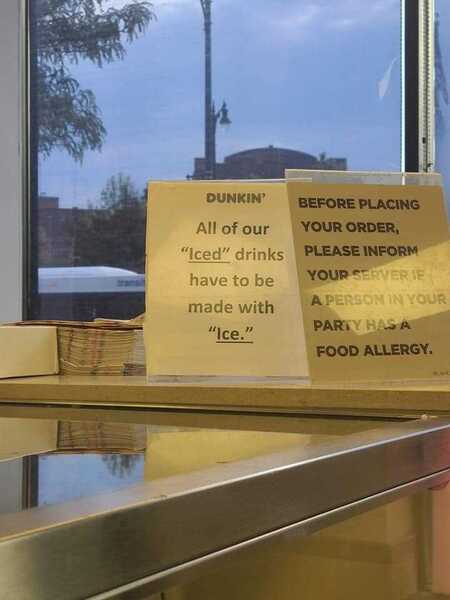 DUNKIN'
All of our
"Iced" drinks
have to be
made with
"Ice."
BEFORE PLACING
YOUR ORDER,
PLEASE INFORM
YOUR SERVER IF
A PERSON IN YOUR
PARTY HAS A
FOOD ALLERGY.
transit